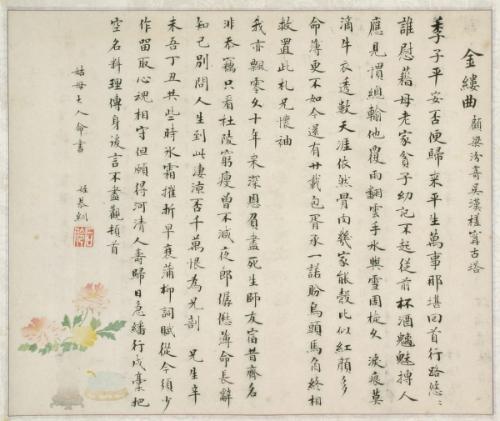 金縷曲 顧梁汾寄吳漢槎甯古塔
季子平安否便歸來平生萬事那堪回首行路悠〻
誰慰藉母老家貧子幼記不起從前杯酒魑魅搏人
應見慣總輸他覆雨翻雲手冰與雪周旋久 淚痕莫
滴牛衣透數天涯依然骨肉幾家能彀比似紅顏多
命薄更不如今還有廿載包胥承一諾盼烏頭馬角終相
救置此札兄懷袖
我亦飄零久十年來深恩負盡死生師友宿昔齊名
非忝竊只看杜陵窮瘦曾不減夜郎僝僽薄命長辭
知己別問人生到此淒涼否千萬恨為兄剖 兄生辛
未吾丁丑共些時冰霜摧折早衰蒲柳詞賦從今須少
作留取心魂相守但願得河清人壽歸日急繙行戍藁把
空名料理傳身後言不盡觀頓首
姑母大人命書 姪